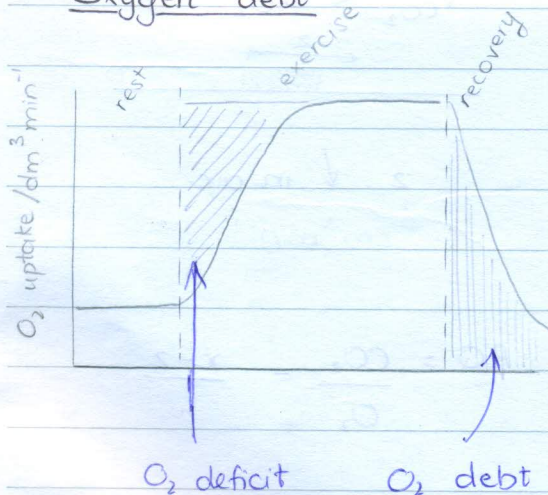 Oxygen debt
rest
exercise
recovery
O₂ uptake /dm³ min⁻¹
O₂ deficit
O₂ debt